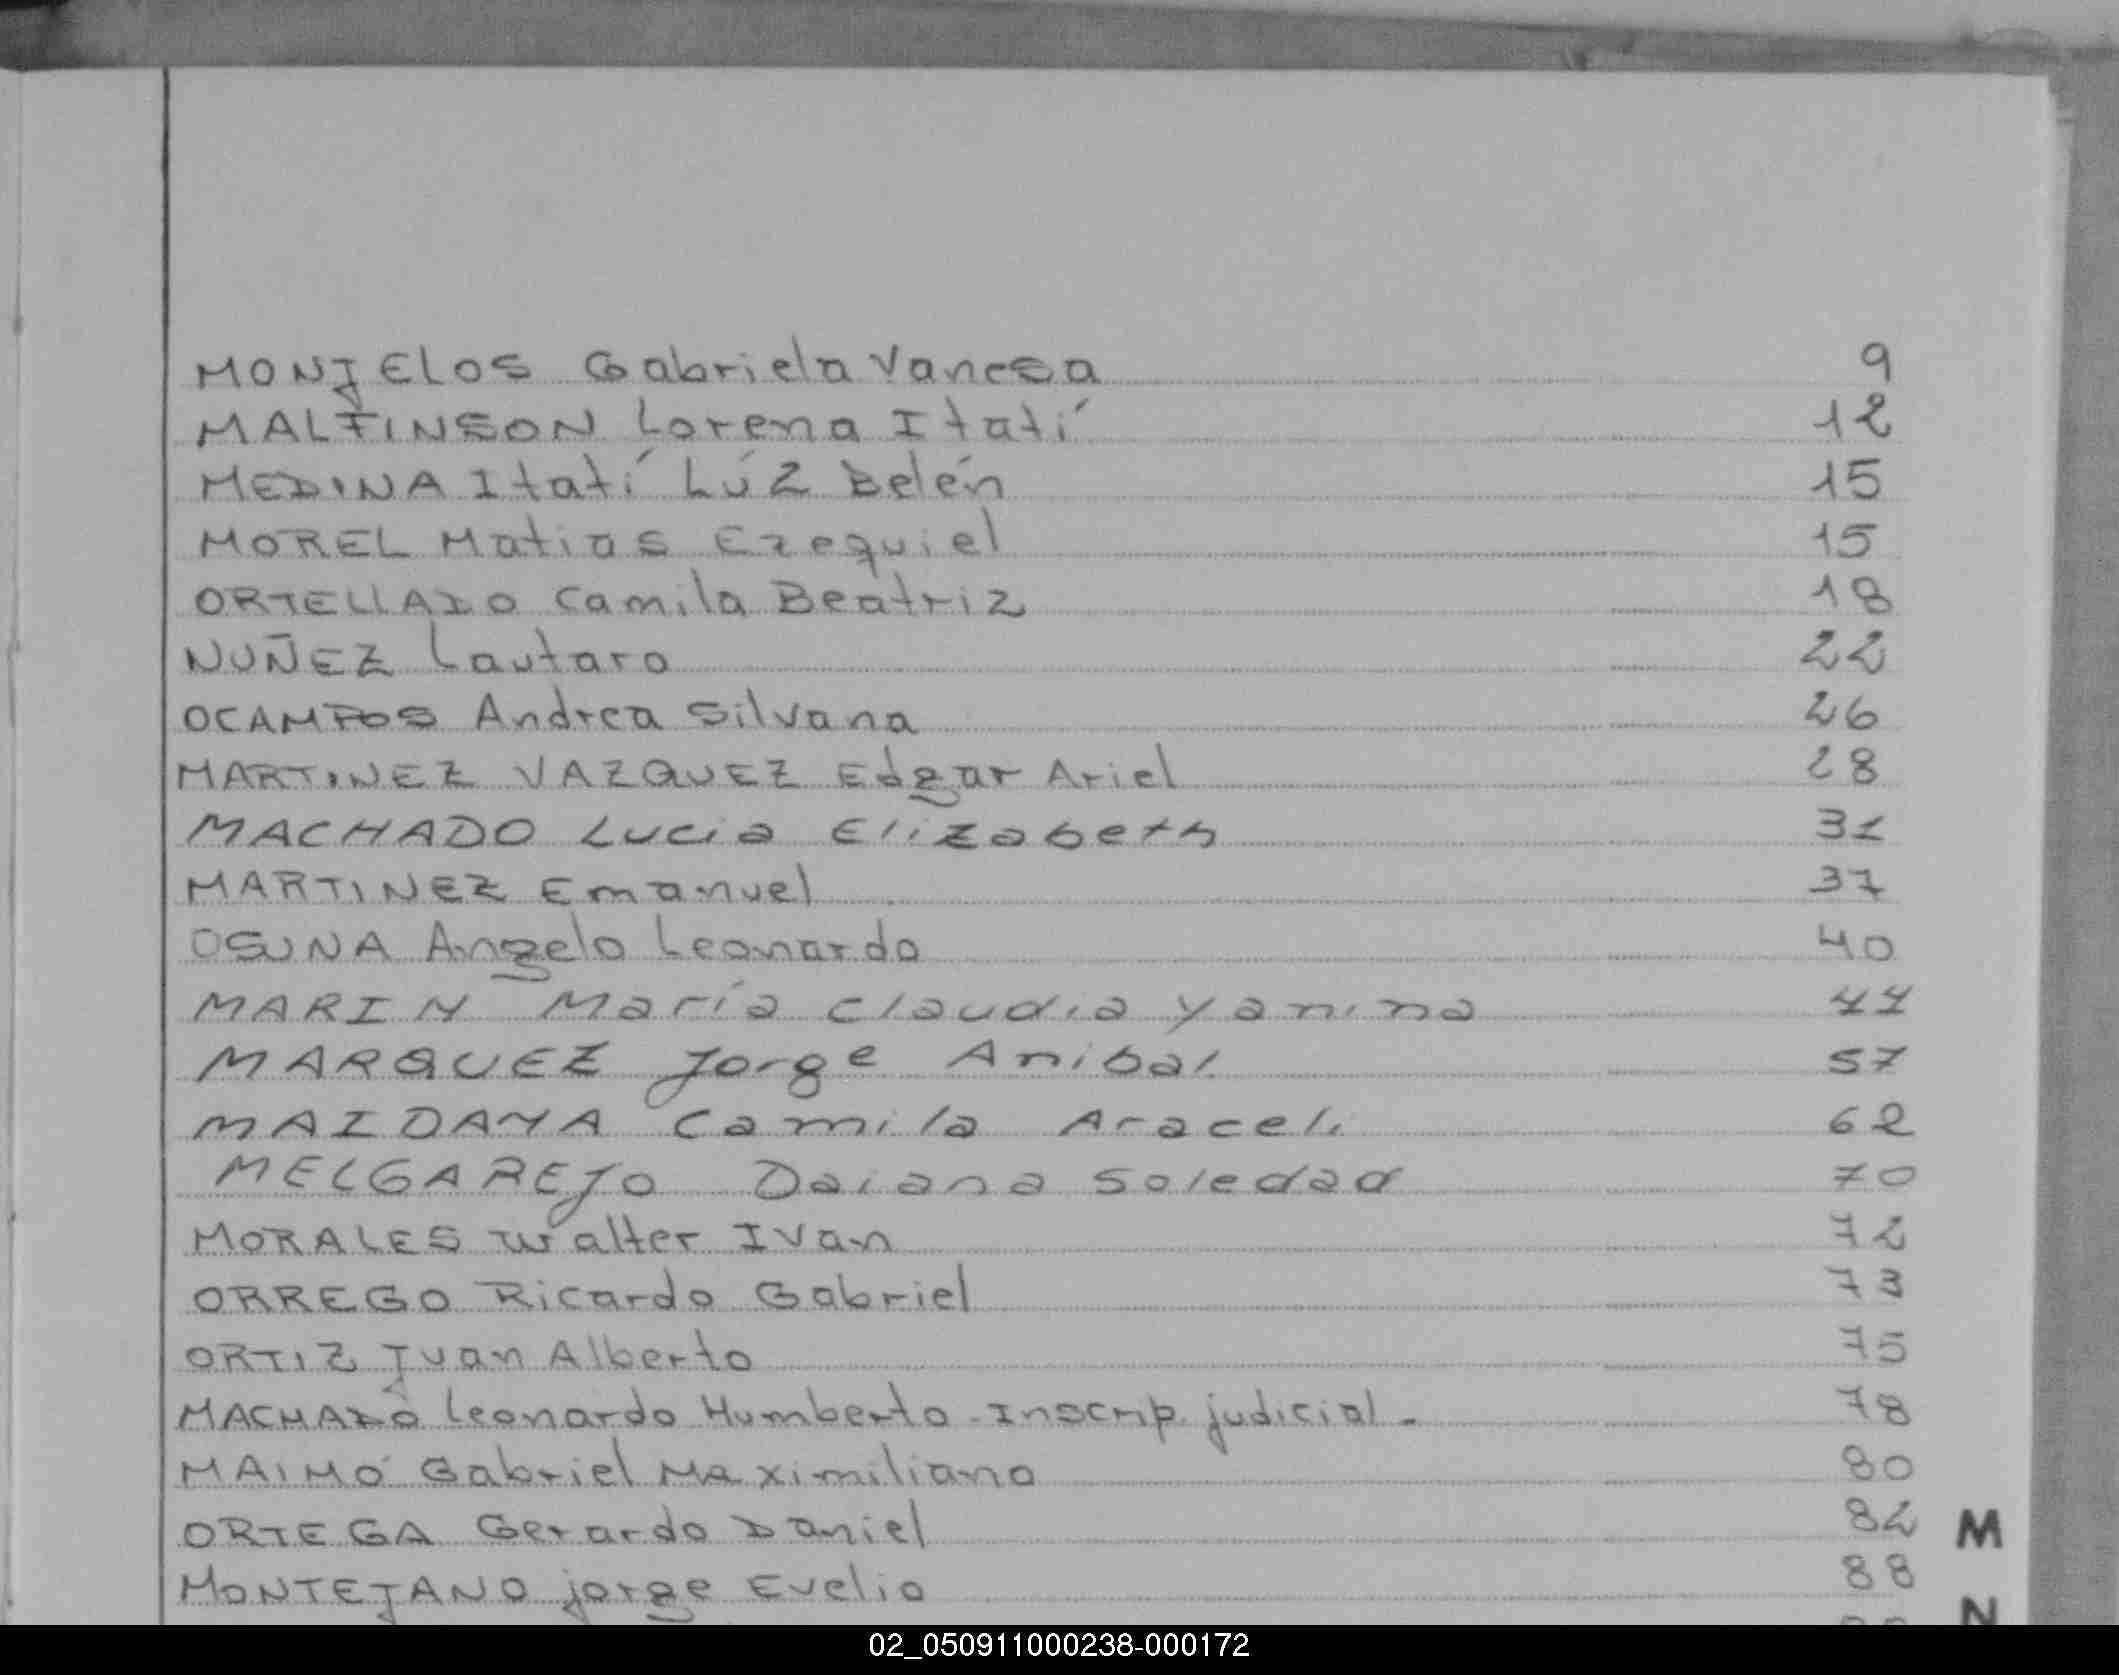 MONJELOS Gabriela Vanesa 9
MALFINSON Lorena Itatí 12
MEDINA Itatí Lúz Belén 15
MOREL Matias Ezequiel 15
ORTELLADO Camila Beatriz 18
NUÑEZ Lautaro 22
OCAMPOS Andrea Silvana 26
MARTINEZ VAZQUEZ Edgar Ariel 28
MACHADO Lucia Elizabeth 31
MARTINEZ Emanuel 37
OSUNA Angelo Leonardo 40
MARIN María Claudia Yanina 41
MARQUEZ Jorge Anibal 57
MAIDANA Camila Araceli 62
MELGAREJO Daiana Soledad 70
MORALES Walter Ivan 72
ORREGO Ricardo Gabriel 73
ORTIZ Juan Alberto 75
MACHADO Leonardo Humberto - Inscrip. judicial - 78
MAIMÓ Gabriel Maximiliano 80
ORTEGA Gerardo Daniel 82
M
MONTEJANO Jorge Evelio 88
N
02_050911000238-000172